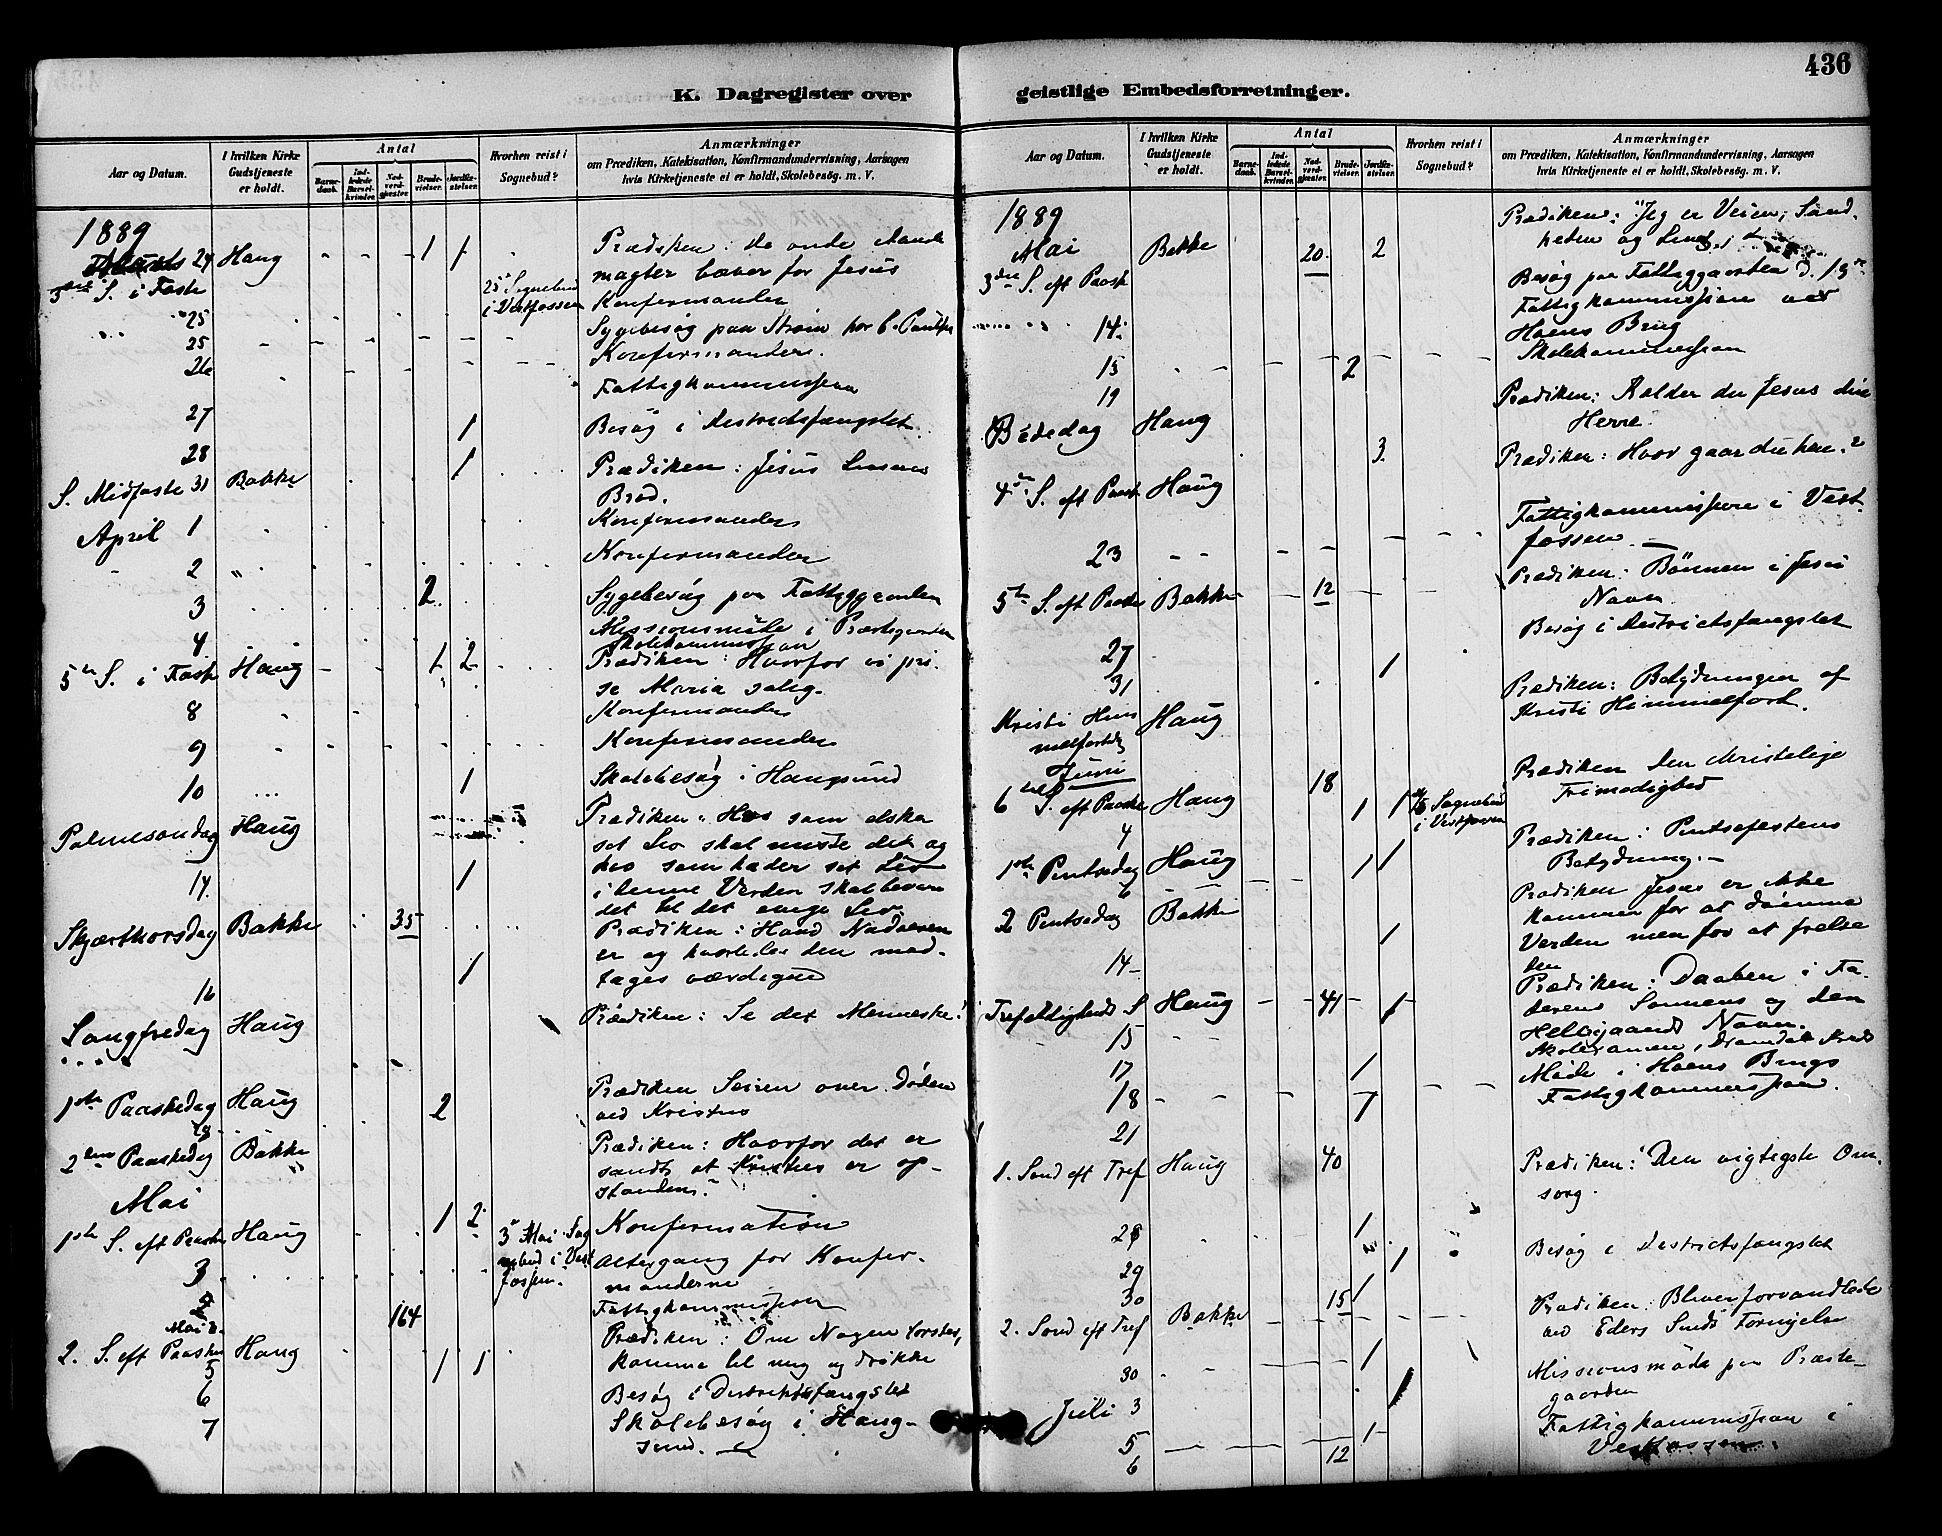 436
K. Dagregister over
geistlige Embedsforretninger.
Aar og Datum.
I hvilken Kirke
Gudstjeneste
er holdt.
Antal
Barne-
daab.
Ind-
ledede
Barsel-
kvinder.
Nad-
verd-
gjæster.
Brude-
vielser.
Jordfæ-
stelser.
Hvorhen reist i
Sognebud?
Anmærkninger
om Prædiken, Katekisation, Konfirmandundervisning, Aarsagen
hvis Kirketjeneste ei er holdt, Skolebesøg. m. V.
1889
24 Haug 1 1 Prædiken: de onde Aande
3die S. i Faste 25 Sognebud magter bæver for Jesus
i Vestfossen Konfirmander
25 Sygebesøg paa Strøm hos
25 Konfirmander.
26
Fattigkommission
27 1 Besøg i Distriktsfængslet.
28 1 Prædiken: Jesus Livsens
S. Midfaste 31 Bakke Brød.
April 1 Konfirmander
2 Konfirmander
3 2 Sygebesøg paa Fattiggaarden
4 Missionsmøte i Præstegaarden
Skolekommission
5te S. i Faste Haug 1 2 Prædiken: Hvorfor vi pri-
se Maria salig.
8 Konfirmander
9 Konfirmander
10 1 Skolebesøg i Haugsund
Palmesøndag Haug Prædiken: Hvo som elsker
sit Liv skal miste det og
hvo som hader sit Liv
14. 1 i denne Verden skal bevare
det til det evige Liv
Skjærthorsdag Bakke 35 Prædiken: Hvad Nadveren
er og hvorledes den mod-
16 1 tages værdigen
Langfredag Haug Prædiken: Se det Menneske!
1ste Paaskedag Haug 2 Prædiken Seiren over Døden
ved Kristus
2den Paaskedag Bakke Prædiken: Hvorfor det er
sandt, at Kristus er op-
standen.
Mai
1ste S. eft Paaske Haug 1 2 3 Mai Sog Konfirmation
nebud i Vest Altergang for Konfir-
3 fossen. manderne
164 Fattigkommission
Mai
2. S. eft Paaske Haug Prædiken: Om Nogen tørster,
5 1 1 komme til mig og drikke
6 Besøg i Distriktsfængslet
7 Skolebesøg i Haug-
sund.
Aar og Datum.
I hvilken Kirke
Gudstjeneste
er holdt.
Antal
Barne-
daab.
Ind-
ledede
Barsel-
kvinder.
Nad-
verd-
gjæster.
Brude-
vielser.
Jordfæ-
stelser.
Hvorhen reist i
Sognebud?
Anmærkninger
om Prædiken, Katekisation, Konfirmandundervisning, Aarsagen
hvis Kirketjeneste ei er holdt, Skolebesøg. m. V.
1889 Prædiken: "Jeg er Veien, Sand-
Mai Bakke 20 2 heden og Livet
3die S. eft Paask Besøg paa Fattiggaarden d. 13de
Fattigkommission ved
14. Hoens Brug
Skolekommission
15 2
19 Prædiken: Kalder du Jesus din
Bededag Haug Herre.
3. Prædiken: Hvor gaar du hen?
4de S. eft Paask Haug
Fattigkommission i Vest-
23 fossen.
5te S. eft Paaske Bakke 12 Prædiken: Bønnen i Jesu
Navn
Besøg i Distriktsfængslet
27 1
31 Prædiken: Betydningen af
Kristi Him Haug Kristi Himmelfart.
melfartsdg
Juni 18 Prædiken den kristelige
6te S. eft Paaske Haug 1 1 Sognebud Frimodighed
i Vestfossen
4 Prædiken: Pintsefestens
1ste Pintsedag Haug 1 1 Betydning.
6 Prædiken Jesus er ikke
2 Pintsedag Bakke kommen for at dømme
1 Verden men for at frelse
14 den
Prædiken: Daaben i Fa-
Trefoldigheds S Haug 41 1 derens Sønnens og den
Helligaands Navn.
15
17 1 Møde i Hoens Brugs
18 1 Fattigkommission.
21
1. Sønd eft Tref Haug 40 Prædiken: Den vigtigste Om-
sorg.
1
29 1 Besøg i Distriktsfængslet
30 15 1 Prædiken: Bliver forvandlede
2. Sønd eft Tref Bakke ved Eders Sinds Fornyelse
30 1 Missionsmøde paa Præste-
gaarden
Juli 3 Fattigkommission i
5 1 Vestfossen.
6 12